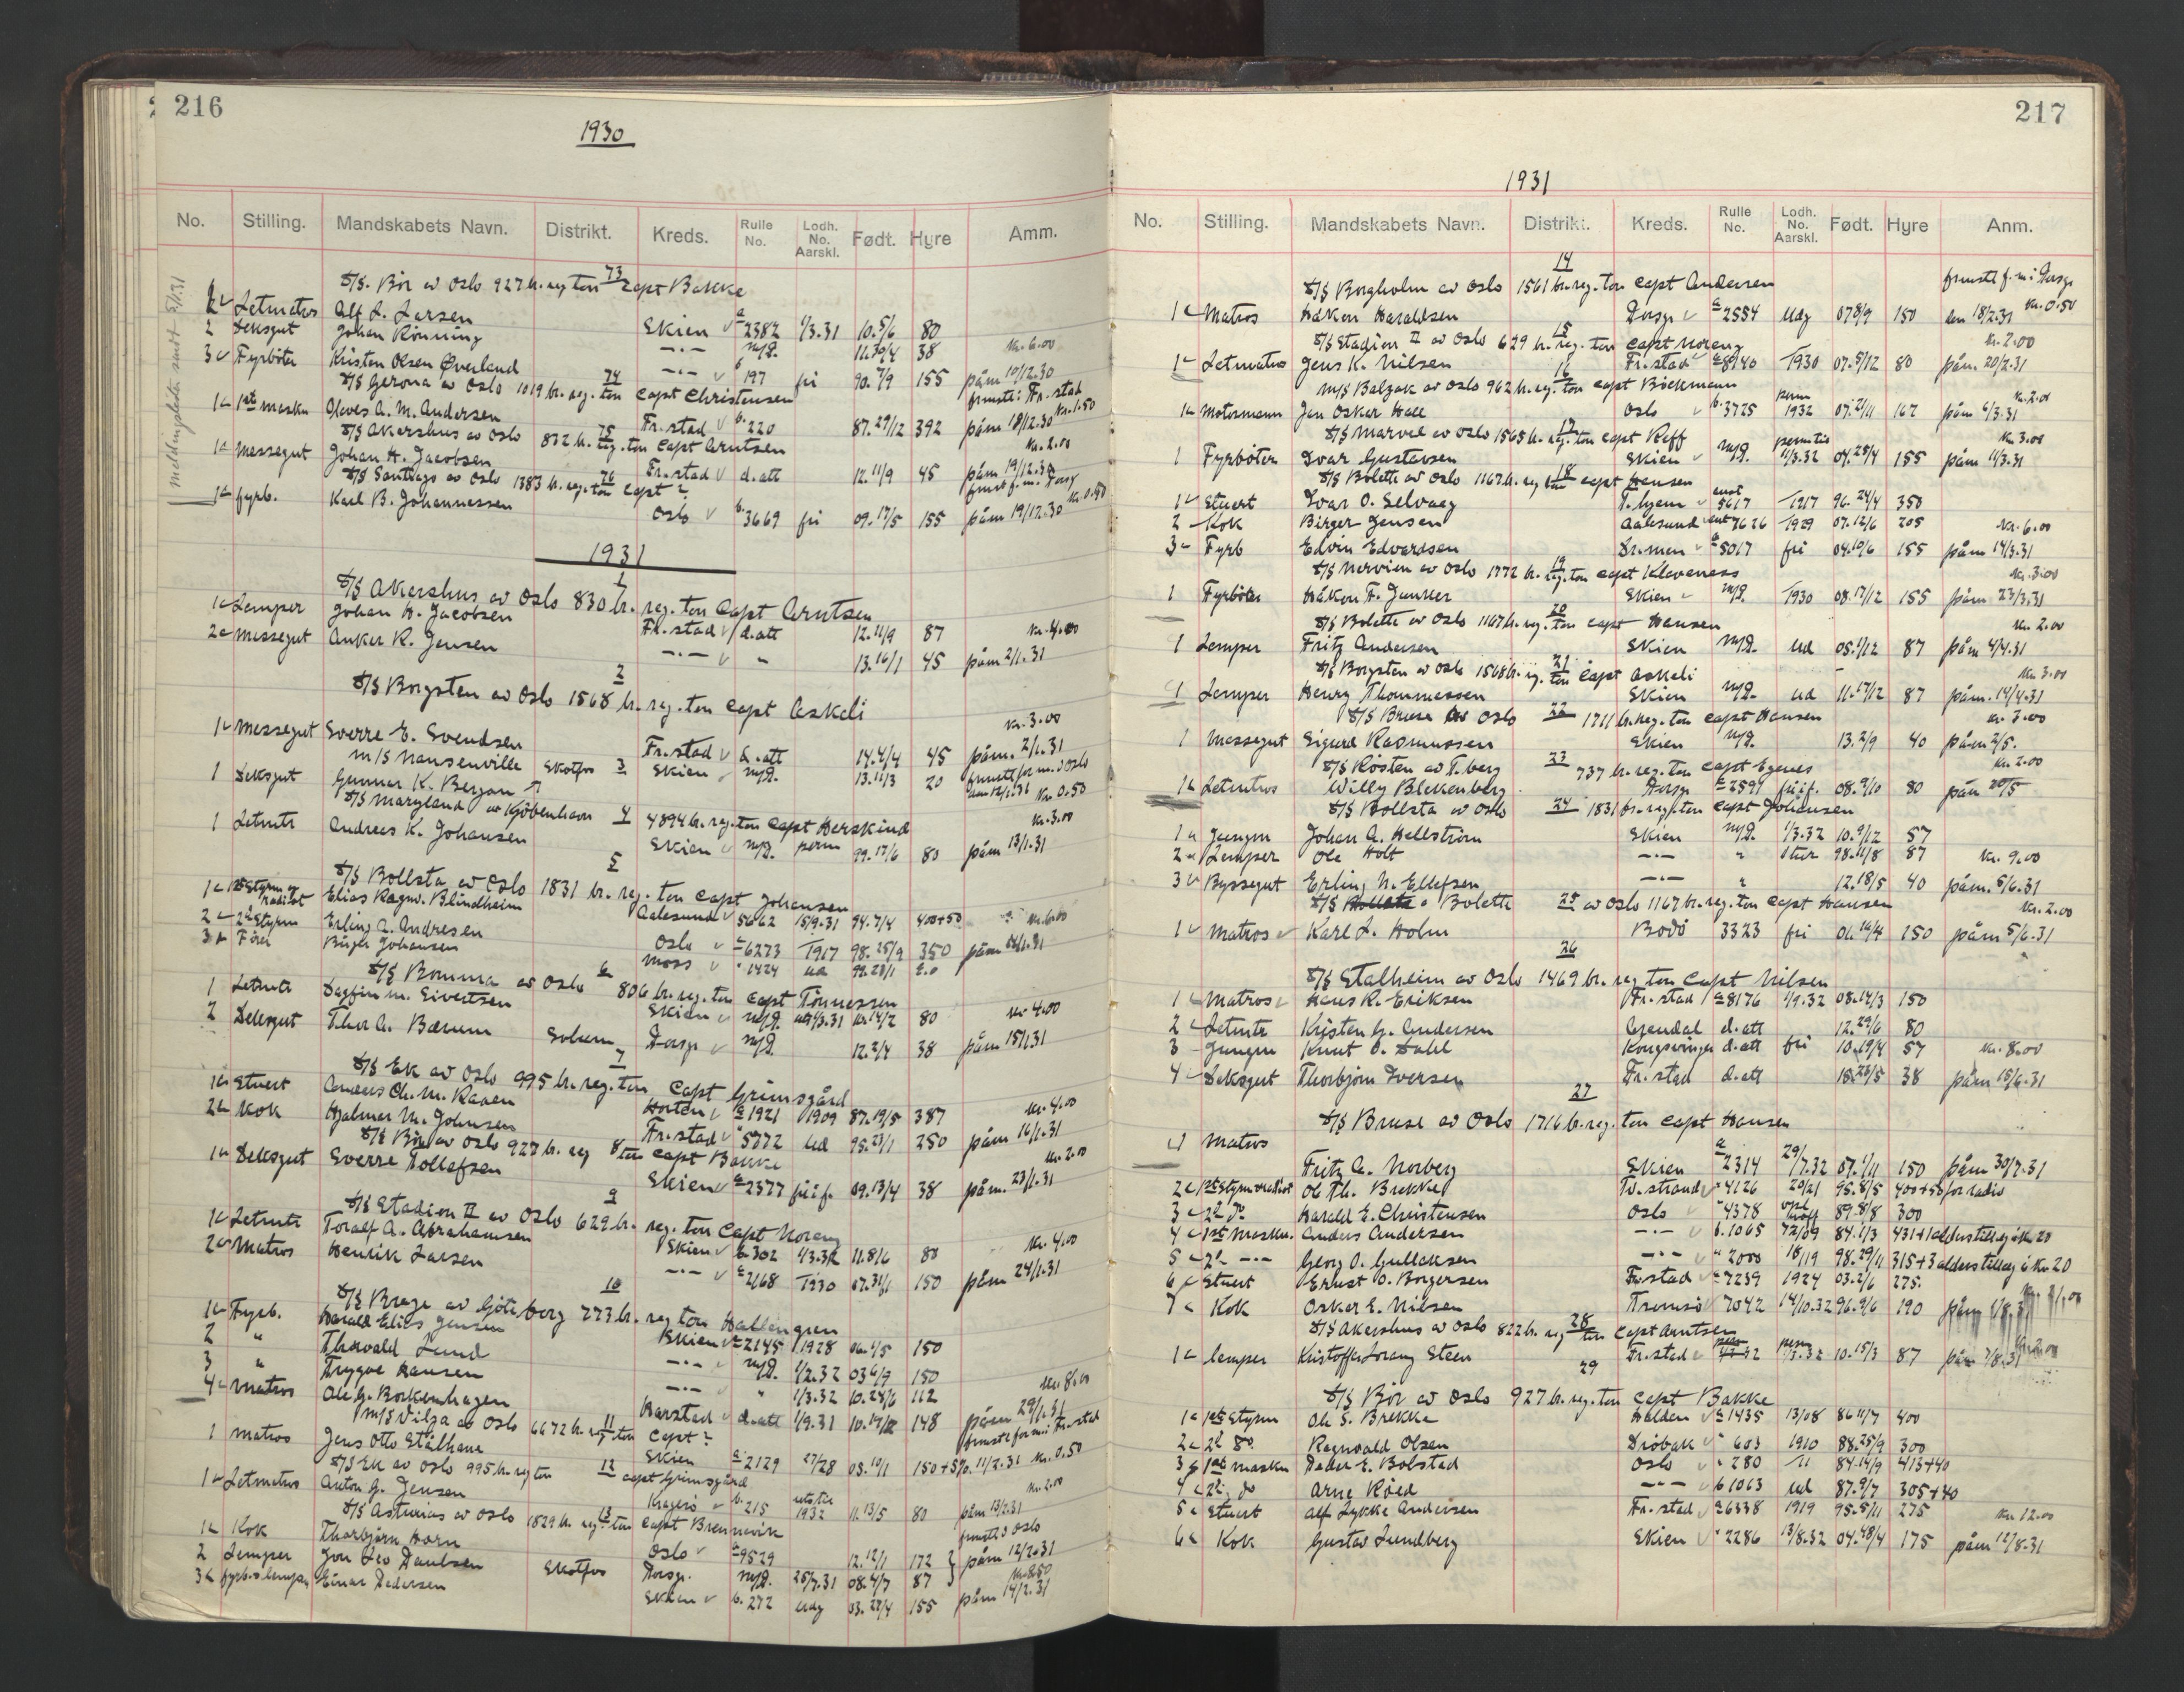 216
1930
No. Stilling. Mandskabets Navn. Distrikt. Kreds. Rulle No. Lodh. No. Aarskl. Født. Hyre Amm.
73
S/S. Bör av Oslo 927 br. reg ton Capt Bakke
Letmatros Alf L. Larsen Skien 2382 1/3.31 10.5/6 80
2 Deksgut Johan Rönning -"- 38 Kr. 6.00
3 Fyrböter Kristen Olsen Överland -"- 197 fri 90.7/9 155 påm 10/12.30
74
S/S Gerona av Oslo 1019 br. reg. ton Capt Christensen
1 1ste maskn Olaves A. M. Andersen Fr. stad 220 87.29/12 392 påm 18/12.30 Kr. 1.50
75
S/S Akershus av Oslo 832 br. reg. ton Capt Arntsen Kr. 2.00
1 Messegut Johan H. Jacobsen Fr. stad d. att 12.11/9 45 påm 19/12.30
76
S/S Santiago av Oslo 1383 br. reg. ton Capt ?
1 fyrb. Karl B. Johannessen Oslo 3669 fri 09.17/5 155 påm 19/12.30 Kr. 0.50
1931
1
S/S Akershus av Oslo 830 br. reg. ton Capt Arntsen
1 Lemper Johan H. Jacobsen Fr. stad d. att 12.11/9 87 Kr. 4.00
2 Messegut Anker R. Jensen -"- " 13.16/1 45 påm 2/1.31
2
S/S Borgsten av Oslo 1568 br. reg. ton Capt Askeli
Kr. 3.00
1 Messegut Sverre E. Svendsen Fr. stad d. att 14.4/4 45 påm. 2/1.31
M/S Nansenville 3
1 Deksgut Gunnar K. Bergan Skotfos Skien 13.11/3 20 Kr 0.50
S/S Maryland av Kjöbenhavn 4 4894 br. reg. ton Capt Herskind Kr. 3.00
1 Letmtr Andreas K. Johansen Skien perm 99.17/6 80 påm 13/1.31
5
S/S Bollsta av Oslo 1831 br. reg. ton Capt Johansen
1 1ste Styrm og radiot Elias Ragnv. Blindheim Aalesund 5662 15/9.31 94.7/4 400+50
2 2de Styrm Erling A. Andresen Oslo 6273 T917 98.25/9 350 påm 14/1.31
3 Birger Johansen Moss 1424
6
S/S Bomma av Oslo 806 br. reg. ton Capt Tönnessen
1 Letmtr Dagfin M. Sivertsen Skien 80 Kr 4.00
2 Deksgut Thor A. Bærum Solum Porsgr 12.2/4 38 påm 15/1.31
7
S/S Ek av Oslo 995 br. reg. ton Capt Grimsgård
1 Stuert Anders Ch. M. Raaen Horten 1921 1909 87.19/5 387 Kr. 4.00
2 Kok Hjalmar M. Johnsen Fr. stad 5772 ud 95.23/1 250 påm 16/1.31
S/S Bör av Oslo 927 br. reg 8 ton Capt Bakke Kr. 2.00
1 Deksgut Sverre Tollefsen Skien 2377 09.13/4 38 påm. 23/1.31
9
S/S Stadion II av Oslo 629 br. reg. ton Capt Noreng
1 Letmtr Toralf A. Abrahamsen Skien 302 1/3.32 11.8/6 80 Kr. 4.00
2 Matros Henrik Larsen -"- 2168 T930 07.31/1 150 påm 24/1.31
10
S/S Brage av Göteborg 773 br. reg ton Hallengren
1 Fyrb. Harald Elias Jensen Skien 2145 1928 06.1/5 150
2 " Thorvald Lund -"- 1/2.32 03.6/9 150
3 " Trygve Hansen -"- " 1/3.32 10.24/6 112 Kr. 8.00
4 Matros Ole G. Borkenhagen Harstad d. att 1/9.31 148 påm 29/1.31
M/S Vilja av Oslo 6672 br. reg ton 11 Capt ?
1 Matros Jens Otto Stålhane Skien 2129 27/28 05.10/1 150+5% 11/2.31 Kr. 0.50
S/S Ek av Oslo 995 br. reg ton 12 Capt Grimsgård Kr. 2.00
1 Letmatros Anton G. Jensen Kragerö 215 1932 11.13/5 80 påm 13/2.31
S/S Asturias av Oslo 1829 br. reg. ton 13 Capt Brennevik
1 Kok Thorbjörn Horn Oslo 9529 12.12/1 172 påm 12/2.31
2 Lemper Jon Leo Paulsen Skotfos Porsgr. 25/7.31 08.4/7 87
3 fyrb. o. lemper Einar Pedersen Skien 272 03.27/4 155 påm 14/2.31
217
1931
No. Stilling. Mandskabets Navn. Distrikt. Kreds. Rulle No. Lodh. No. Aarskl. Født. Hyre Anm.
14
S/S Borgholm av Oslo 1561 br. reg. ton Capt Andersen
1 Matros Håkon Haraldsen Porsgr 2554 Udg 07.8/9 150 den 18/2.31 Kr. 0.50
15
S/S Stadion II av Oslo 629 br. reg. ton Capt Noreng Kr. 2.00
1 Letmatros Jens K. Nilsen Fr. stad 8940 T930 07.5/12 80 påm. 20/2.31
16
M/S Balzak av Oslo 962 br. reg. ton Capt Böckmann Kr. 2.00
1 Motormann Jan Oskar Hall Oslo 3725 perm 1932 07.2/11 162 påm 6/3.31
17
S/S Marvel av Oslo 1565 br. reg. ton Capt Reff Kr 3.00
1 Fyrböter Ivar Gustavsen Skien 11/3.32 04.25/4 155 påm 11/3.31
18
S/S Bolette av Oslo 1167 br. reg ton Capt Hansen
1 Stuert Ivar O. Selvaag T. hjem 5617 T917 96.24/4 350
2 Kok Birger Jensen Aalesund 7626 T929 07.12/6 205 Kr. 6.00
3 Fyrb Edvin Edvardsen Dr. men 5017 fri 04.10/6 155 påm 14/3.31
19
S/S Norvien av Oslo 1772 br. reg. ton Capt Klaveness Kr. 3.00
1 Fyrböter Håkon F. Junker Skien T930 08.17/12 155 påm 23/3.31
20
S/S Bolette av Oslo 1167 br. reg. ton Capt Hansen Kr. 2.00
1 Lemper Fritz Andersen Skien ud 05.1/12 87 påm 4/4.31
21
S/S Borgsten av Oslo 1568 br. reg. ton Capt Askeli Kr 3.00
1 Lemper Henry Thommessen Skien ud 11.17/12 87 påm. 14/4.31
S/S Bruse av Oslo 22 1711 br. reg. ton Capt Hansen Kr. 3.00
1 Messegut Sigurd Rasmussen Skien 13.2/9 40 påm 2/5.
S/S Rösten av T.berg 23 737 br. reg. ton Capt Egenes Kr. 2.00
1 Letmtros Willy Blekenberg Porsgr 2591 08.9/10 80 påm 20/5
S/S Bollsta av Oslo 24 1831 br. reg. ton Capt Johansen
1 Jungm Johan A. Hellström Skien 1/3.32 10.9/12 57
2 Lemper Ole Holt -"- " 98.11/8 87 Kr. 9.00
3 Byssegut Erling N. Ellefsen -"- " 12.18/5 40 påm. 5/6.31
S/S Bolette 25 av Oslo 1167 br. reg. ton Capt Hansen Kr. 2.00
1 Matros Karl L. Holm Bodö 3323 fri 01.16/4 150 påm 5/6.31
26
S/S Stalheim av Oslo 1469 br. reg ton Capt Nilsen
1 Matros Hans R. Eriksen Fr. stad 8176 1/9.32 08.14/3 150
2 Letmtr Kristen G. Andersen Arendal d. att 12.29/6 80
3 Jungm Knut O. Dahl Kongsvinger d. att fri 10.19/4 57 Kr. 8.00
4 Deksgut Thorbjörn Iversen Fr. stad d. att 38 påm 15/6.31
27
S/S Bruse av Oslo 1716 br. reg. ton Capt Hansen
1 Matros Fritz A. Norberg Skien 2314 29/7.32 07.1/11 150 påm 30/7.31
2 1ste Styrm o radiot Ol Th. Brekke Tv. strand 4126 20/21 95.8/5 400+50 for radio
3 2de do Harald E. Christensen Oslo 4378 89.8/8 300
4 1ste Maskn. Anders Andersen -"- 1065 72/09 84.1/3 431+1 alderstillæg à Kr. 20
5 2d -"- Georg O. Gullaksen -"- 2000 18/19 98.29/11 315+3 alders tillæg à Kr. 20
6 Stuert Ernst O. Borgersen Fr. stad 7239 1924 03.2/6 275.
7 Kok Oskar E. Nilsen Tromsö 7042 14/10.32 96.9/6 190
28
S/S Akershus av Oslo 822 br. reg ton Capt Arntsen
1 lemper Kristoffer Lorang Steen Fr. stad perm 1/3.32 10.15/3 87 påm 7/8.31
29
S/S Bör av Oslo 927 br. reg. ton Capt Bakke
1 1ste Styrm Ole S. Brekke Halden 1435 13/08 86.11/7 400
2 2d do Ragnvald Olsen Dröbak 603 1910 88.25/9 300
3 1ste maskn Peder E. Bolstad Oslo 280 11 84.14/9 413+40
4 2d do Arne Röed -"- 1063 ud 87.9/7 305+40
5 Stuert Alf Lykke Andersen Fr. stad 6338 1919 95.5/11 275 Kr. 12.00
6 Kok Gustav Lundberg Skien 2286 13/8.32 175 påm 12/8.31